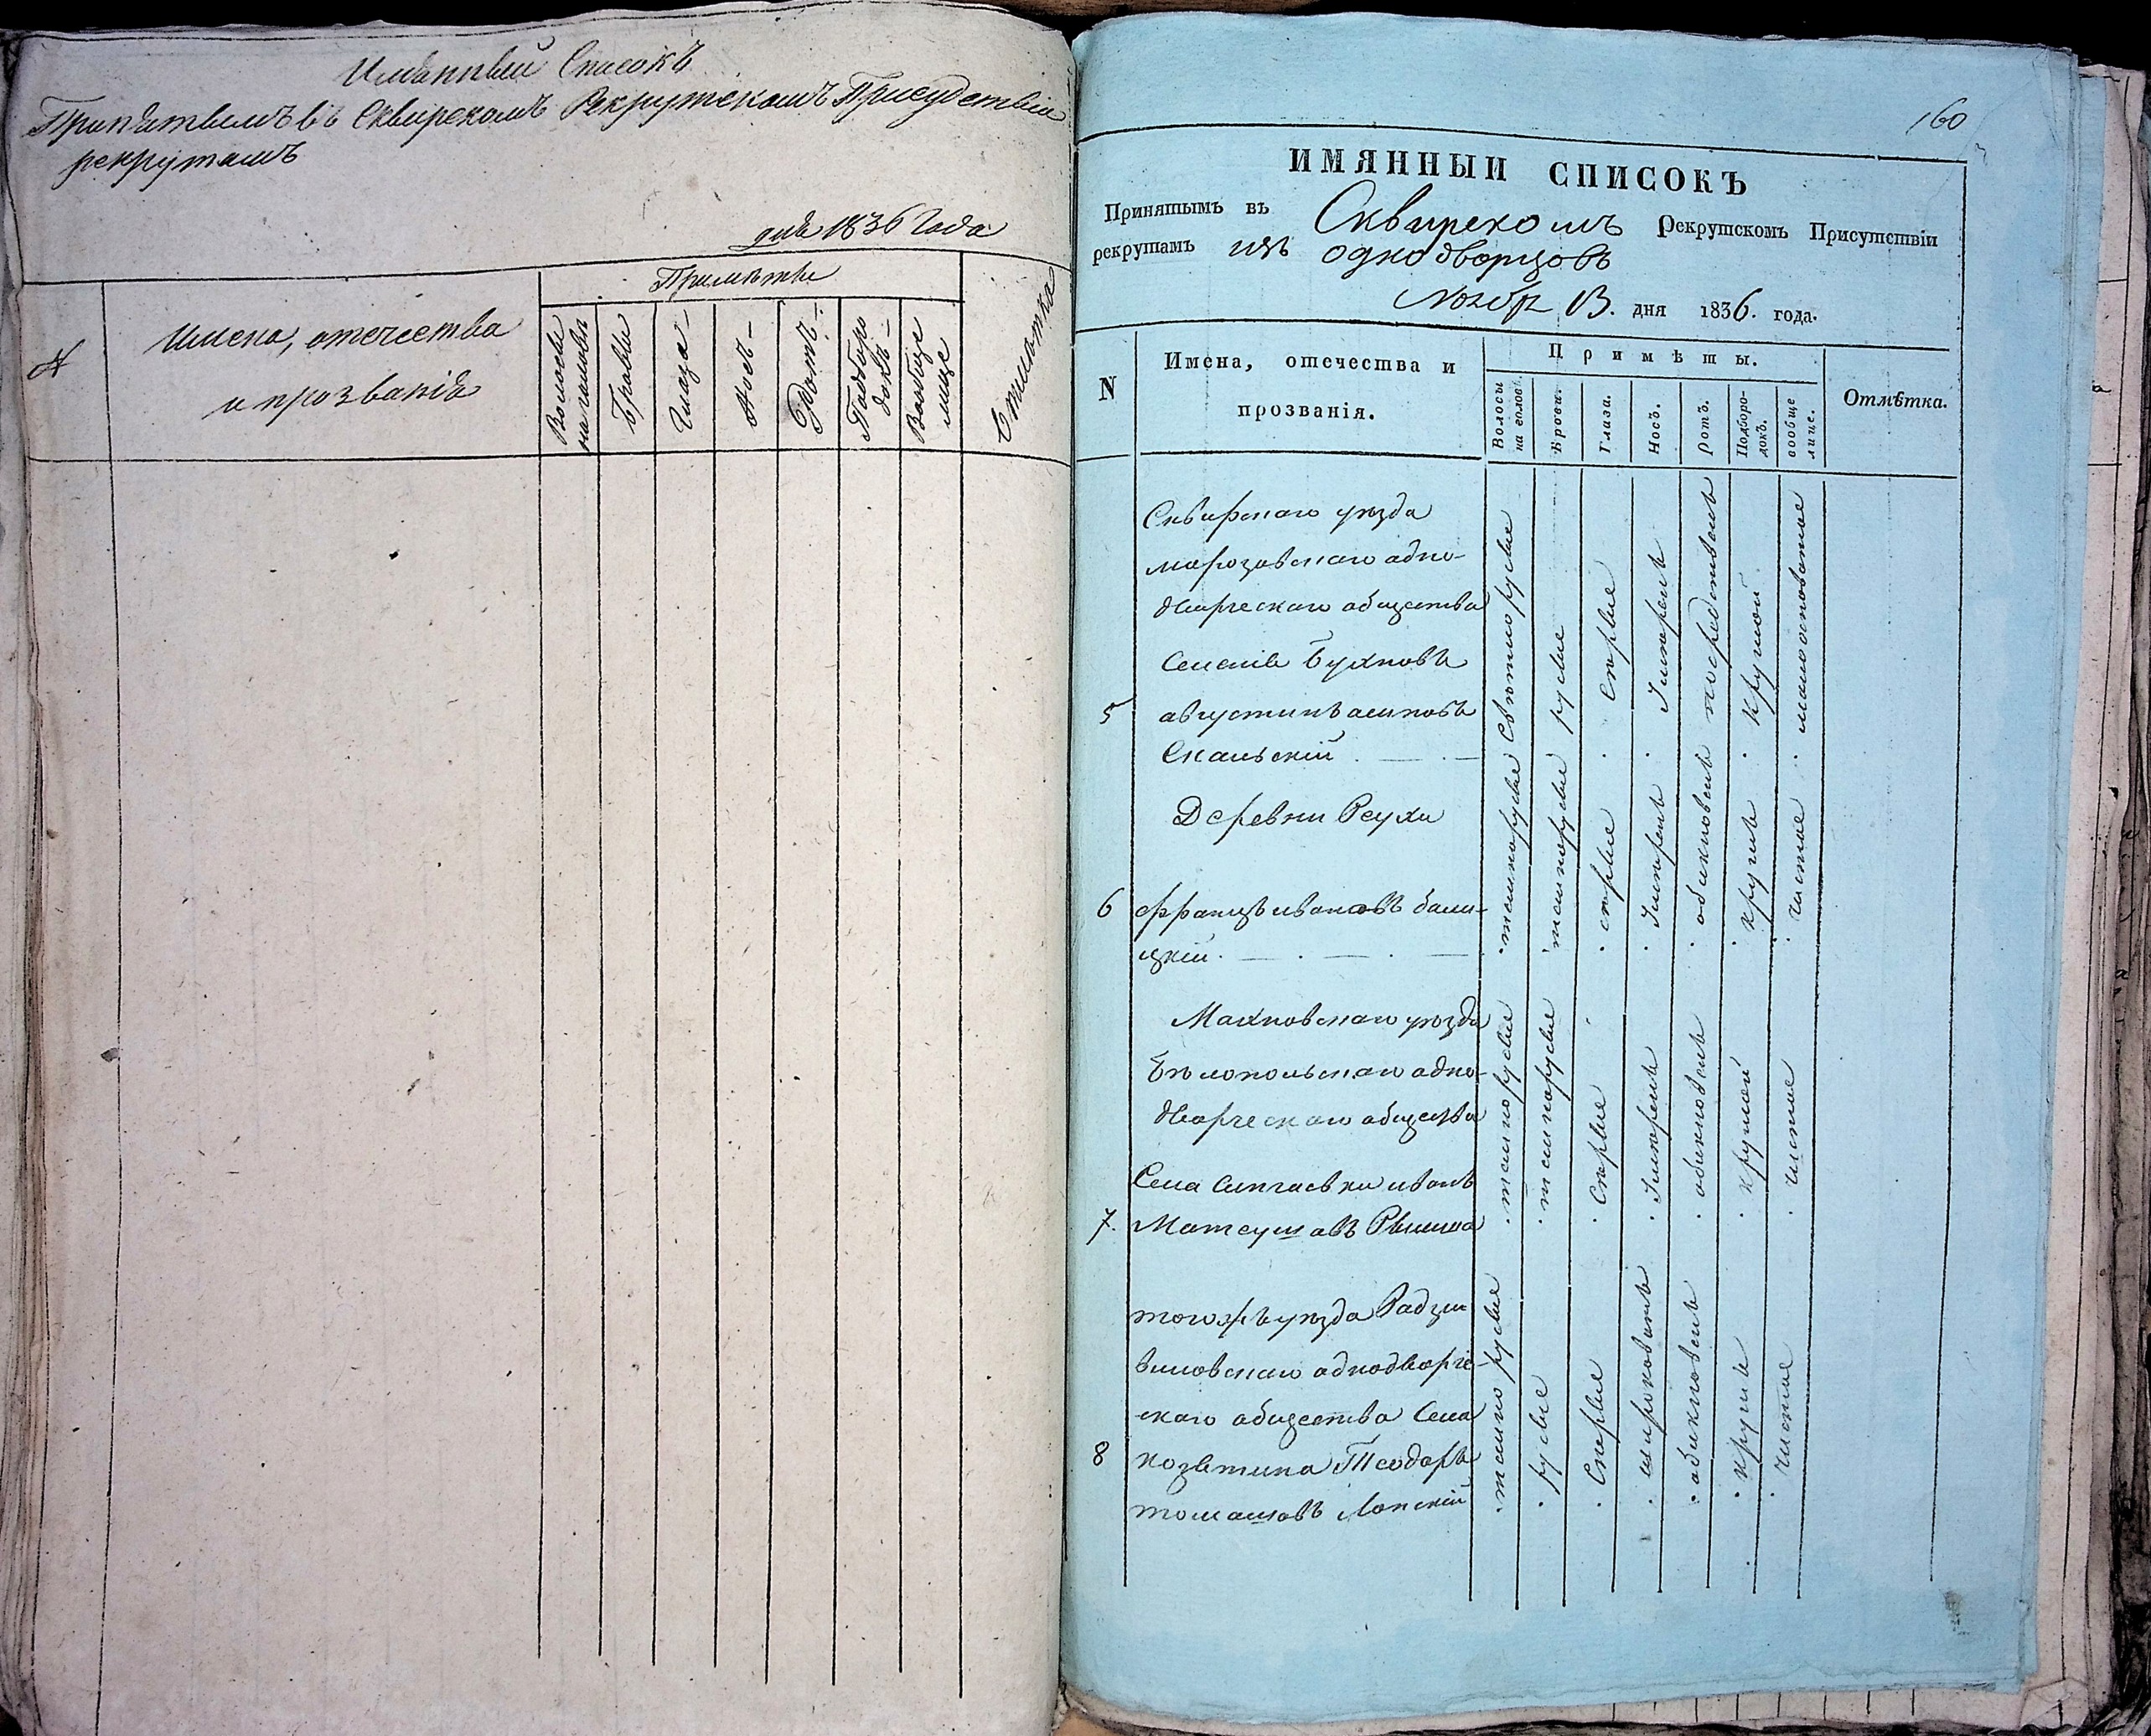 Имянный Списокъ
Принятымъ въ Сквирскомъ Рекрутскомъ Присудствіи
рекрутамъ
дня 1836 Года
№
Имена, отечества
и прозванія
Примѣты
Волосы
на головѣ
Бровы
Глаза
Носъ
Ротъ
Подборо
докъ
Вообще
лице
Отмѣтка
160
ИМЯННЫЙ СПИСОКЪ
Принятымъ въ Сквирскомъ Рекрутскомъ Присутствіи
рекрутамъ изъ однодворцовъ
Ноябр 13. дня 1836. года.
N
Имена, отечества и
прозванія.
Примѣты.
Волосы
на голов.
Брови.
Глаза.
Носъ.
Ротъ.
Подборо-
докъ.
вообще
лице.
Отмѣтка.
Сквирскаго уѣзда
морозовскаго одно-
дворческаго общества
Селенія Бухновъ
5 августинъ
Скальскій
свѣтлорусые
русые
сѣрые
умѣренъ
посредственъ
круглой
Деревни Реухи
6 францъ ивановъ бали-
цкій
темнорусые
темнорусые
сѣрые
умѣренъ
обикновенъ
круглъ
чистое
Махновскаго уѣзда
Бѣлопольскаго одно-
дворческаго общества
Села иванъ
7. Матеушовъ
темнорусые
темнорусые
Сѣрые
умѣренъ
обикновенъ
круглой
чистое
тогожъ уѣзда Радзи
виловскаго однодворче-
скаго общества Села
8 Теодоръ
томашовъ Лонскій
темнорусые
русые
Сѣрые
широковатъ
обикновенъ
круглъ
чистое